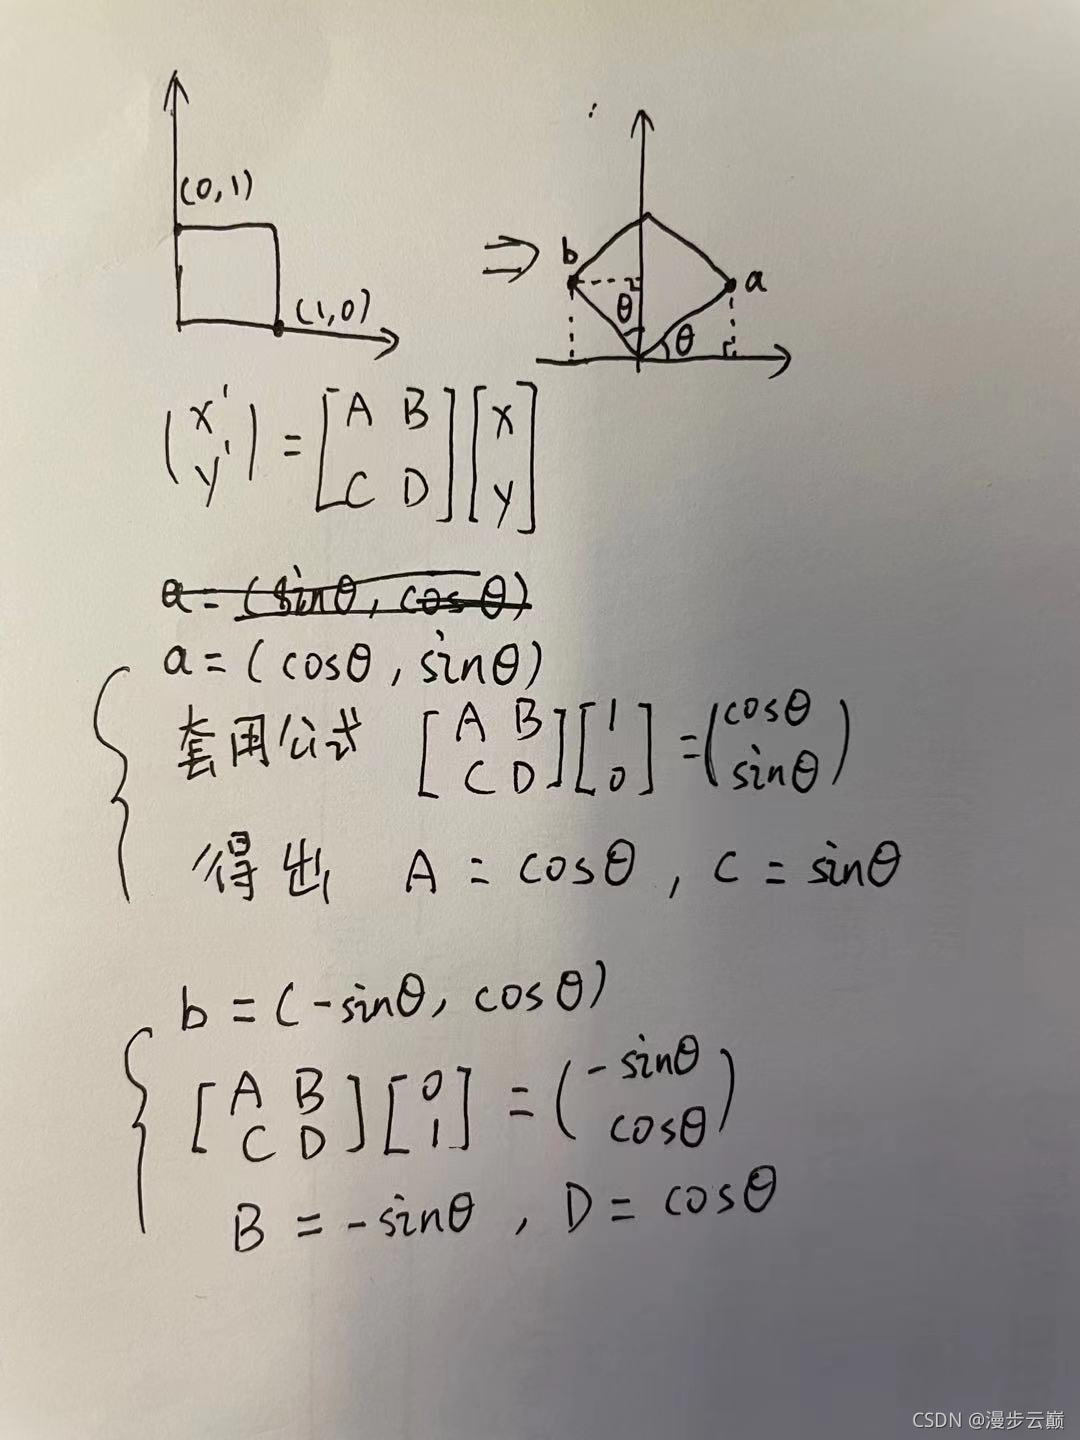 (0,1)
(1,0)
⇒
b
a
θ
θ
(x' y') = [A B C D] [x y]
a = (sinθ, cosθ)
a = (cosθ, sinθ)
套用公式 [A B C D] [1 0] = (cosθ sinθ)
得出 A = cosθ , C = sinθ
b = (-sinθ, cosθ)
[A B C D] [0 1] = (-sinθ cosθ)
B = -sinθ , D = cosθ
CSDN @漫步云巅